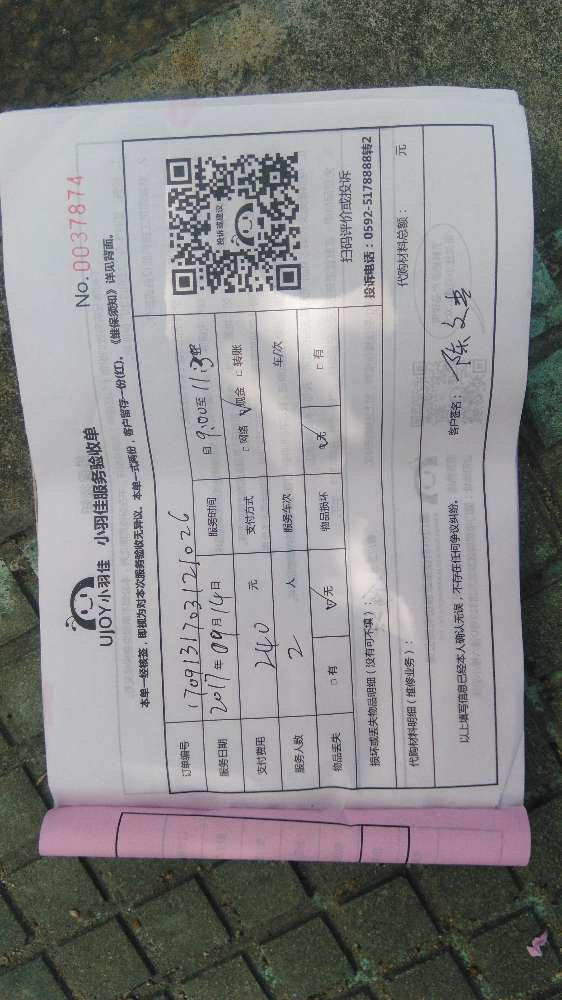 No. 0037874
UJOY小羽佳 小羽佳服务验收单
本单一经核签，即视为对本次服务验收无异议。本单一式两份，客户留存一份(红)。《维保须知》详见背面。
订单编号 1709131703121026
服务日期 2017年09月14日 服务时间 9:00至11:30
支付费用 240 元 支付方式 □网络 ☑现金 □转账
服务人数 2 人 服务车次 车/次
物品丢失 □有 ☑无 物品损坏 ☑无 □有
投诉或建议
扫码评价或投诉
投诉电话：0592-5178888转2
损坏或丢失物品明细（没有可不填）：
代购材料明细（维修业务）： 代购材料总额： 元
以上填写信息已经本人确认无误，不存在任何争议纠纷。 客户签名：